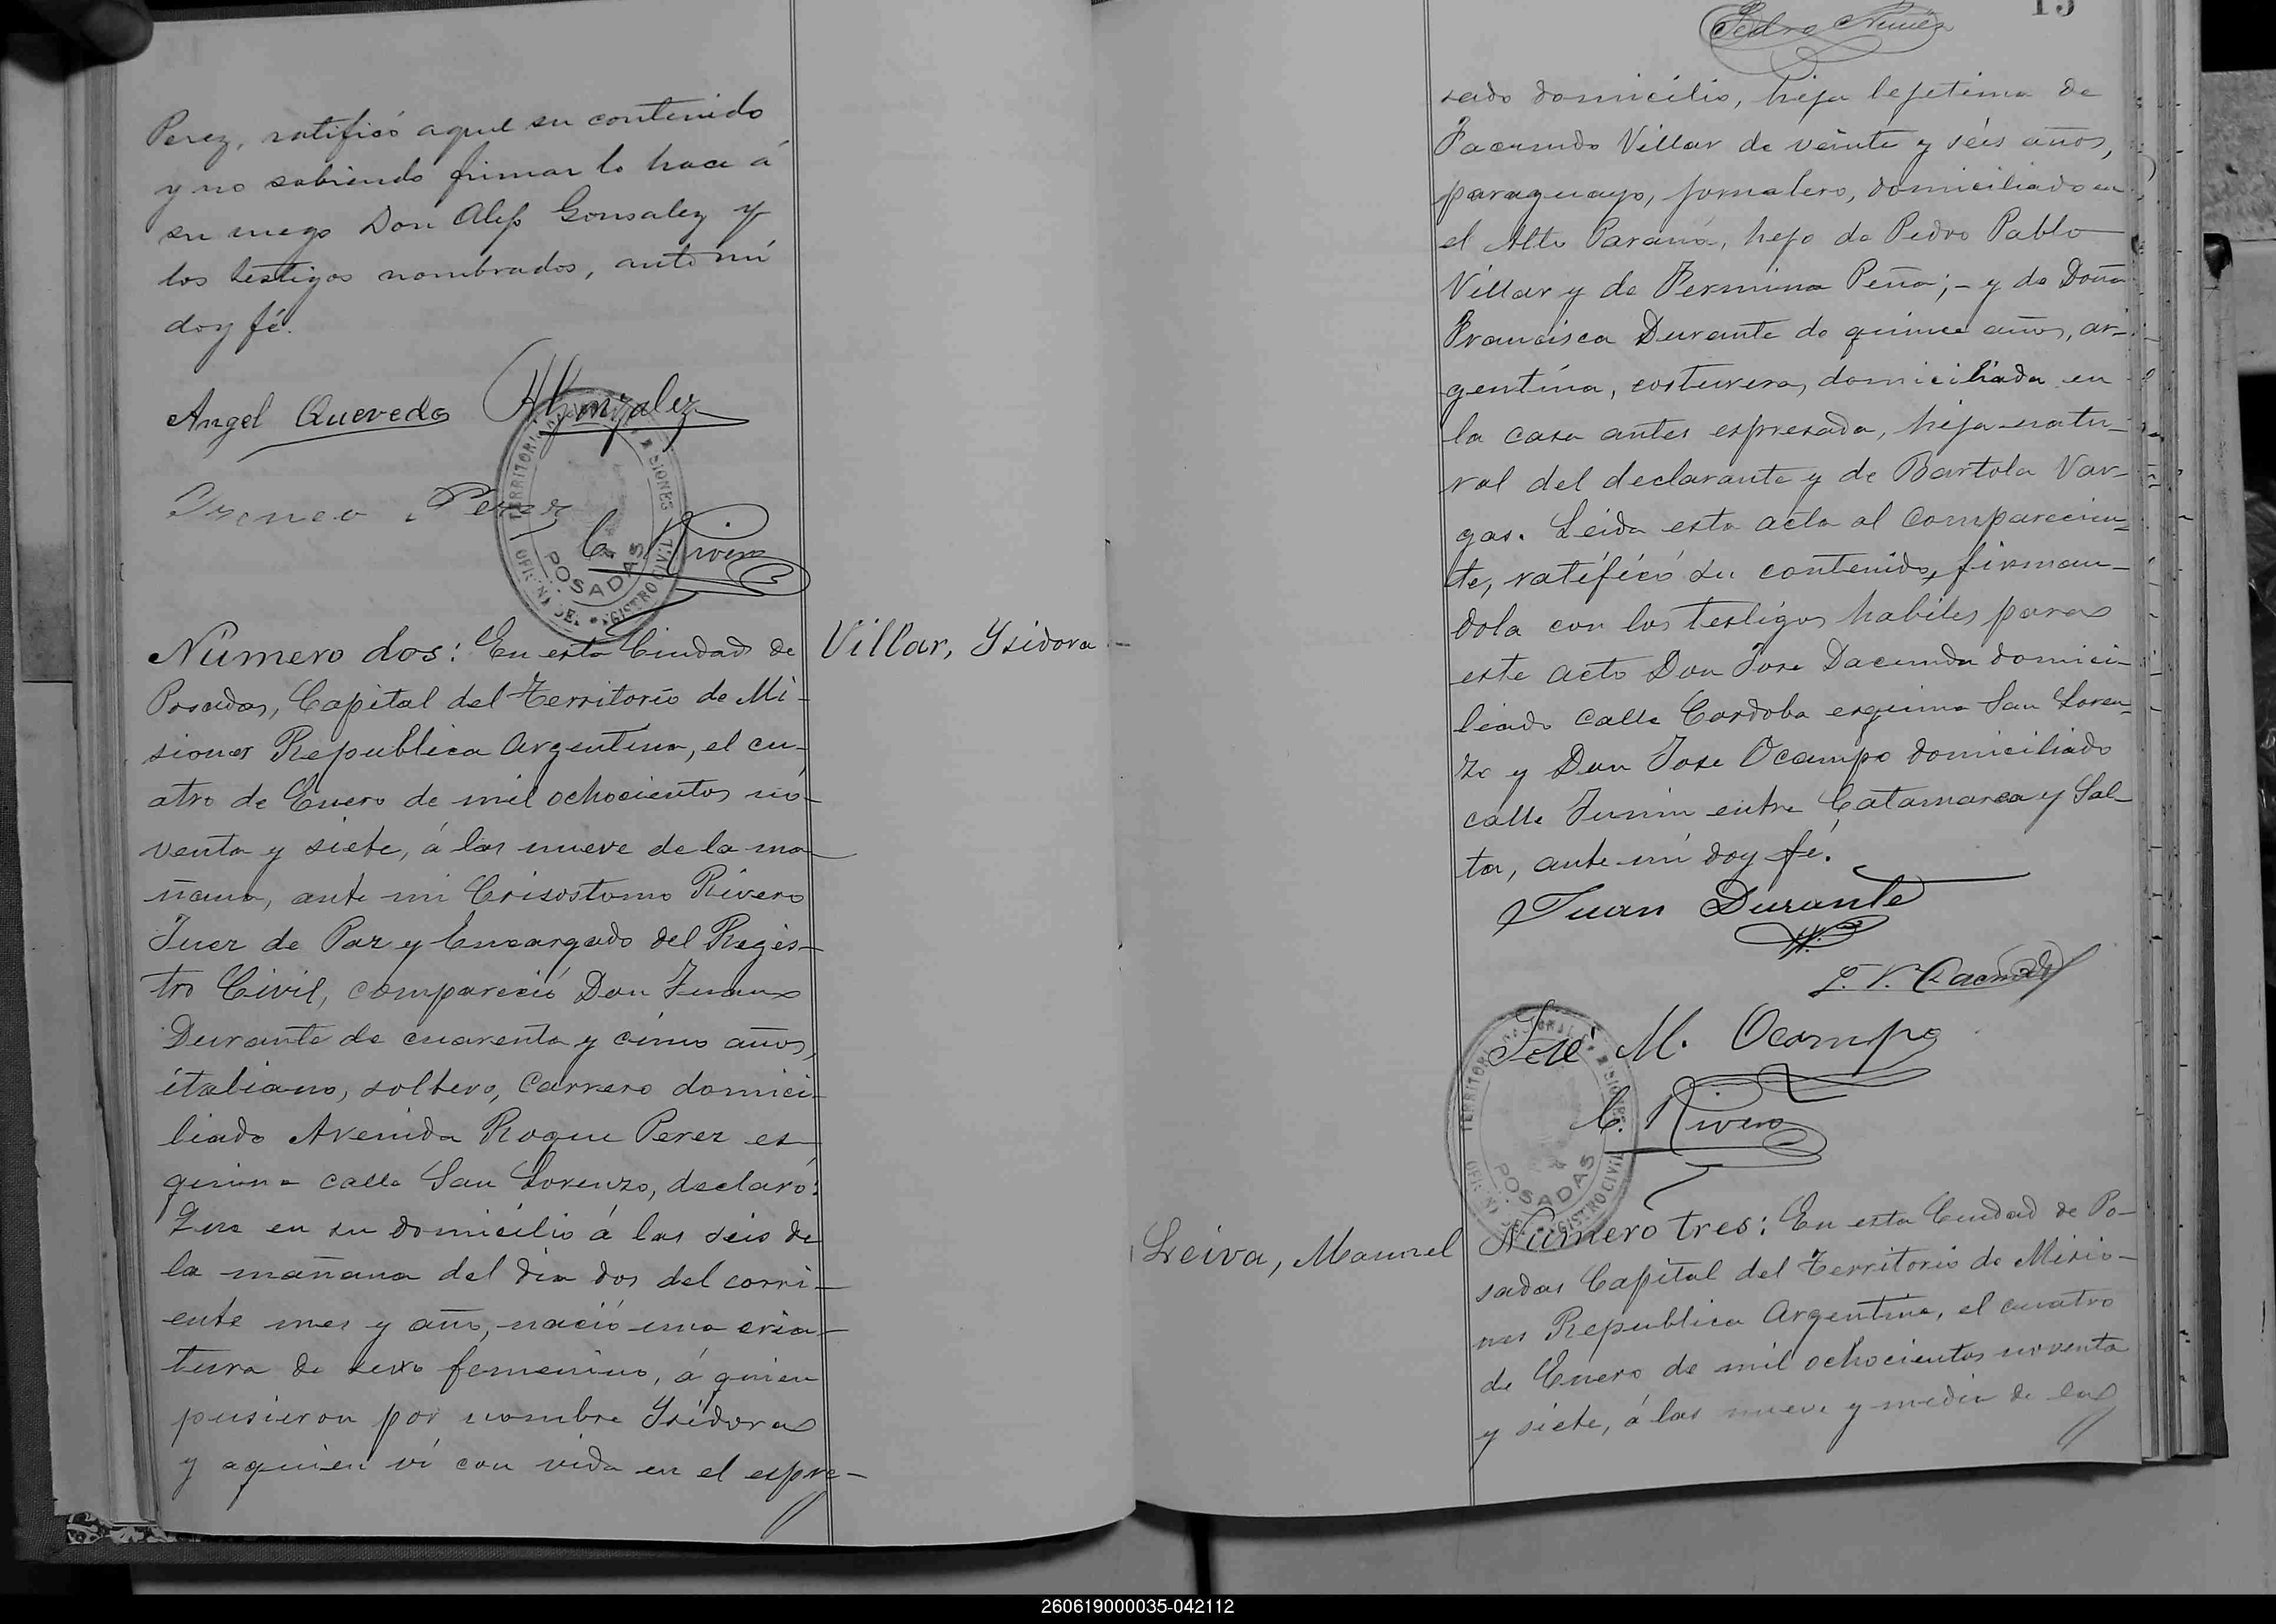 Perez, ratificó aquel su contenido
y no sabiendo firmar lo hace á
su ruego Don Alejo Gonsalez y
los testigos nombrados, ante mí
doy fé.
Angel Quevedo
Gonzalez
Ireneo Perez
C. Rivero
TERRITORIO MISIONES
POSADAS
Número dos: En esta Ciudad de
Villar, Ysidora
Posadas, Capital del Territorio de Mi-
siones Republica Argentina, el cu-
atro de Enero de mil ochocientos no-
venta y siete, á las nueve de la ma-
ñana, ante mi Crisostomo Rivero
Juez de Paz y Encargado del Regis-
tro Civil, compareció Don Juan
Durante de cuarenta y cinco años,
italiano, soltero, Carrero domici-
liado Avenida Roque Perez es-
quina calle San Lorenzo, declaró:
Que en su domicilio á las seis de
la mañana del dia dos del corri-
ente mes y año, nació una cria-
tura de sexo femenino, á quien
pusieron por nombre Ysidora
y aquien ví con vida en el espre-
15
Pedro Nuñez
sado domicilio, hija lejitima de
Facundo Villar de veinte y séis años,
paraguayo, jornalero, domiciliado en
el Alto Paraná, hijo de Pedro Pablo
Villar y de Fermina Peña;- y de Doña
Francisca Durante de quince años, ar-
gentina, costurera, domiciliada en
la casa antes espresada, hija natu-
ral del declarante y de Bartola Var-
gas. Leida esta acta al Comparecien-
te, ratificó su contenido, firman-
dola con los testigos habiles para
este acto Don Jose Dacunda domici-
liado calle Cordoba esquina San Loren-
zo y Don Jose Ocampo domiciliado
calle Junin entre Catamarca y Sal-
ta, ante mí doy fé.
Juan Durante
José M. Ocampo
C. Rivero
TERRITORIO NACIONAL MISIONES
POSADAS
Leiva, Manuel
Número tres: En esta Ciudad de Po-
sadas Capital del Territorio de Misio-
nes Republica Argentina, el cuatro
de Enero de mil ochocientos noventa
y siete, á las nueve y media de la
260619000035-042112